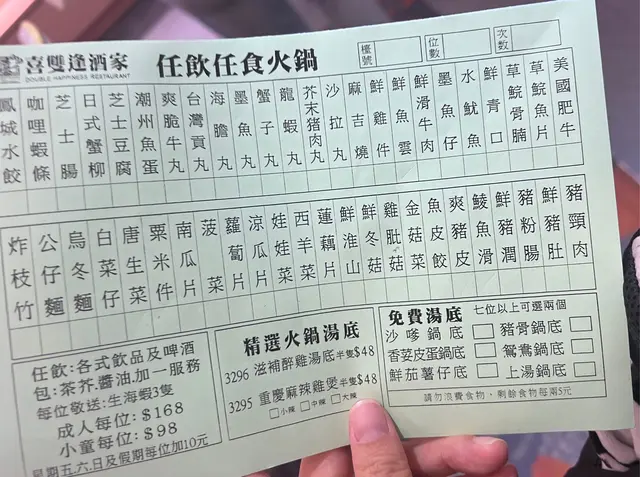 喜雙逢酒家
DOUBLE HAPPINESS RESTAURANT
任飲任食火鍋
檯號
位數
次數
美國肥牛
草鯇魚片
草鯇骨腩
鮮青口
水魷魚
墨魚仔
鮮滑牛肉
鮮魚雲
鮮雞件
麻吉燒
沙拉丸
芥末猪肉丸
龍蝦丸
蟹子丸
墨魚丸
海膽丸
台灣貢丸
爽脆牛丸
潮州魚蛋
芝士豆腐
日式蟹柳
芝士腸
咖哩蝦條
鳳城水餃
豬頸肉
鮮豬肚
豬粉腸
鮮豬潤
鯪魚滑
爽豬皮
魚皮餃
金菇
雞肶菇
鮮冬菇
鮮淮山
蓮藕片
西洋菜
娃娃菜
涼瓜片
蘿蔔片
菠菜
南瓜片
粟米件
唐生菜
白菜仔
烏冬麵
公仔麵
炸枝竹
任飲:各式飲品及啤酒
包:茶芥.醬油.加一服務
每位敬送:生海蝦3隻
成人每位:$168
小童每位:$98
星期五.六.日及假期每位加10元
精選火鍋湯底
3296 滋補醉雞湯底半隻$48
3295 重慶麻辣雞煲半隻$48
小辣 中辣 大辣
免費湯底 七位以上可選兩個
沙嗲鍋底 豬骨鍋底
香荽皮蛋鍋底 鴛鴦鍋底
鮮茄薯仔底 上湯鍋底
請勿浪費食物，剩餘食物每兩5元